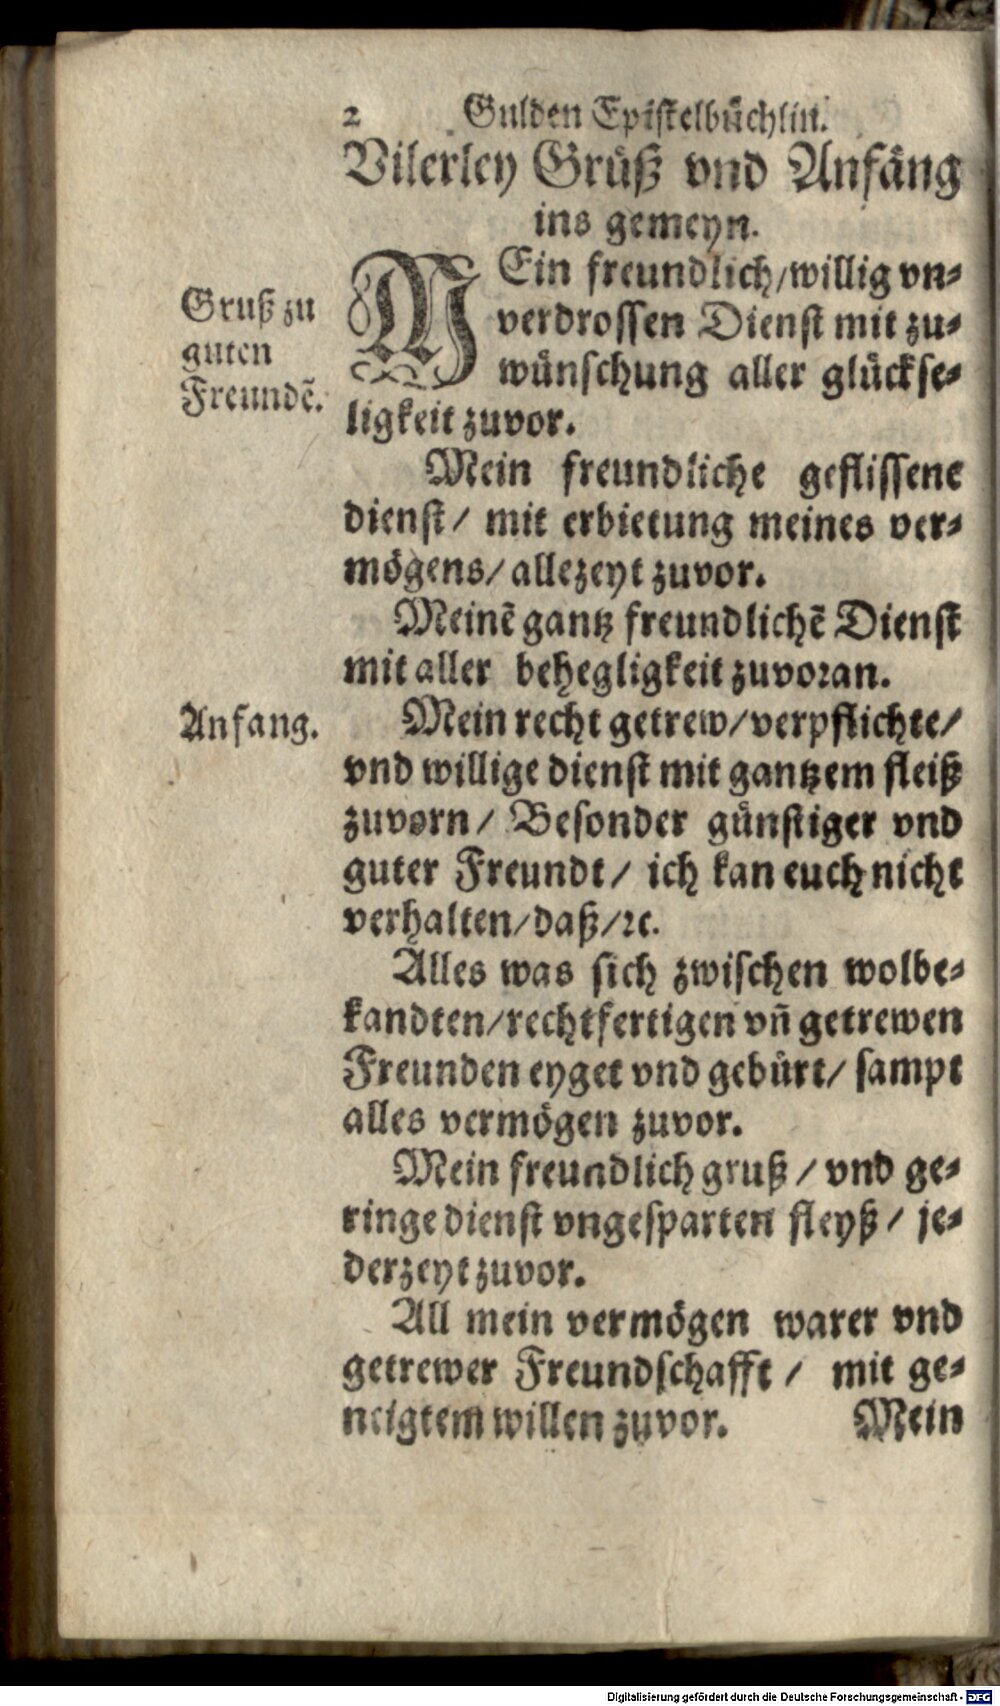 2 Gulden Epistelbüchlin.
Vilerley Grüß vnd Anfäng
ins gemeyn.
Gruß zu
guten
Freundẽ.
MEin freundlich/willig vn⸗
verdrossen Dienst mit zu⸗
wünschung aller glückse⸗
ligkeit zuvor.
Mein freundliche geflissene
dienst/ mit erbietung meines ver⸗
mögens/ allezeyt zuvor.
Meinẽ gantz freundlichẽ Dienst
mit aller behegligkeit zuvoran.
Anfang.
Mein recht getrew/verpflichte/
vnd willige dienst mit gantzem fleiß
zuvorn/ Besonder günstiger vnd
guter Freundt/ ich kan euch nicht
verhalten/daß/ꝛc.
Alles was sich zwischen wolbe⸗
kandten/rechtfertigen vñ getrewen
Freunden eyget vnd gebürt/ sampt
alles vermögen zuvor.
Mein freundlich gruß / vnd ge⸗
ringe dienst vngesparten fleyß / je⸗
derzeyt zuvor.
All mein vermögen warer vnd
getrewer Freundschafft / mit ge⸗
neigtem willen zuvor. Mein
Digitalisierung gefördert durch die Deutsche Forschungsgemeinschaft - DFG